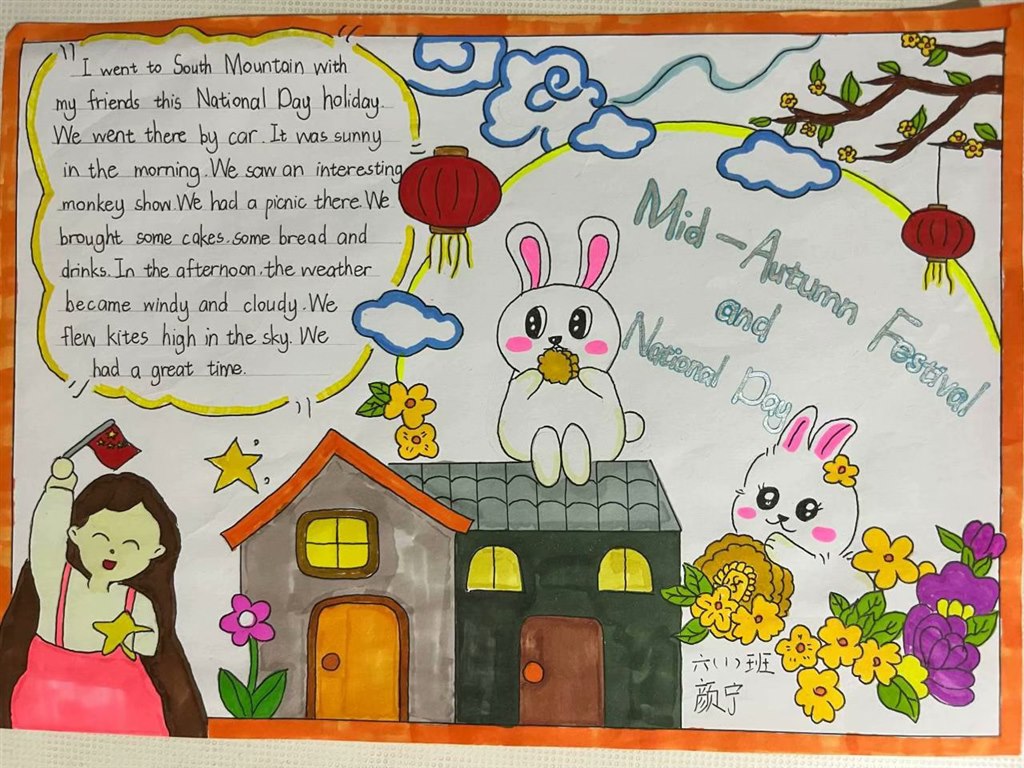 I went to South Mountain with
my friends this National Day holiday.
We went there by car. It was sunny
in the morning. We saw an interesting
monkey show. We had a picnic there. We
brought some cakes. some bread and
drinks. In the afternoon. the weather
became windy and cloudy. We
flew kites high in the sky. We
had a great time.
Mid-Autumn Festival
and
National Day
六(1)班
颜宁